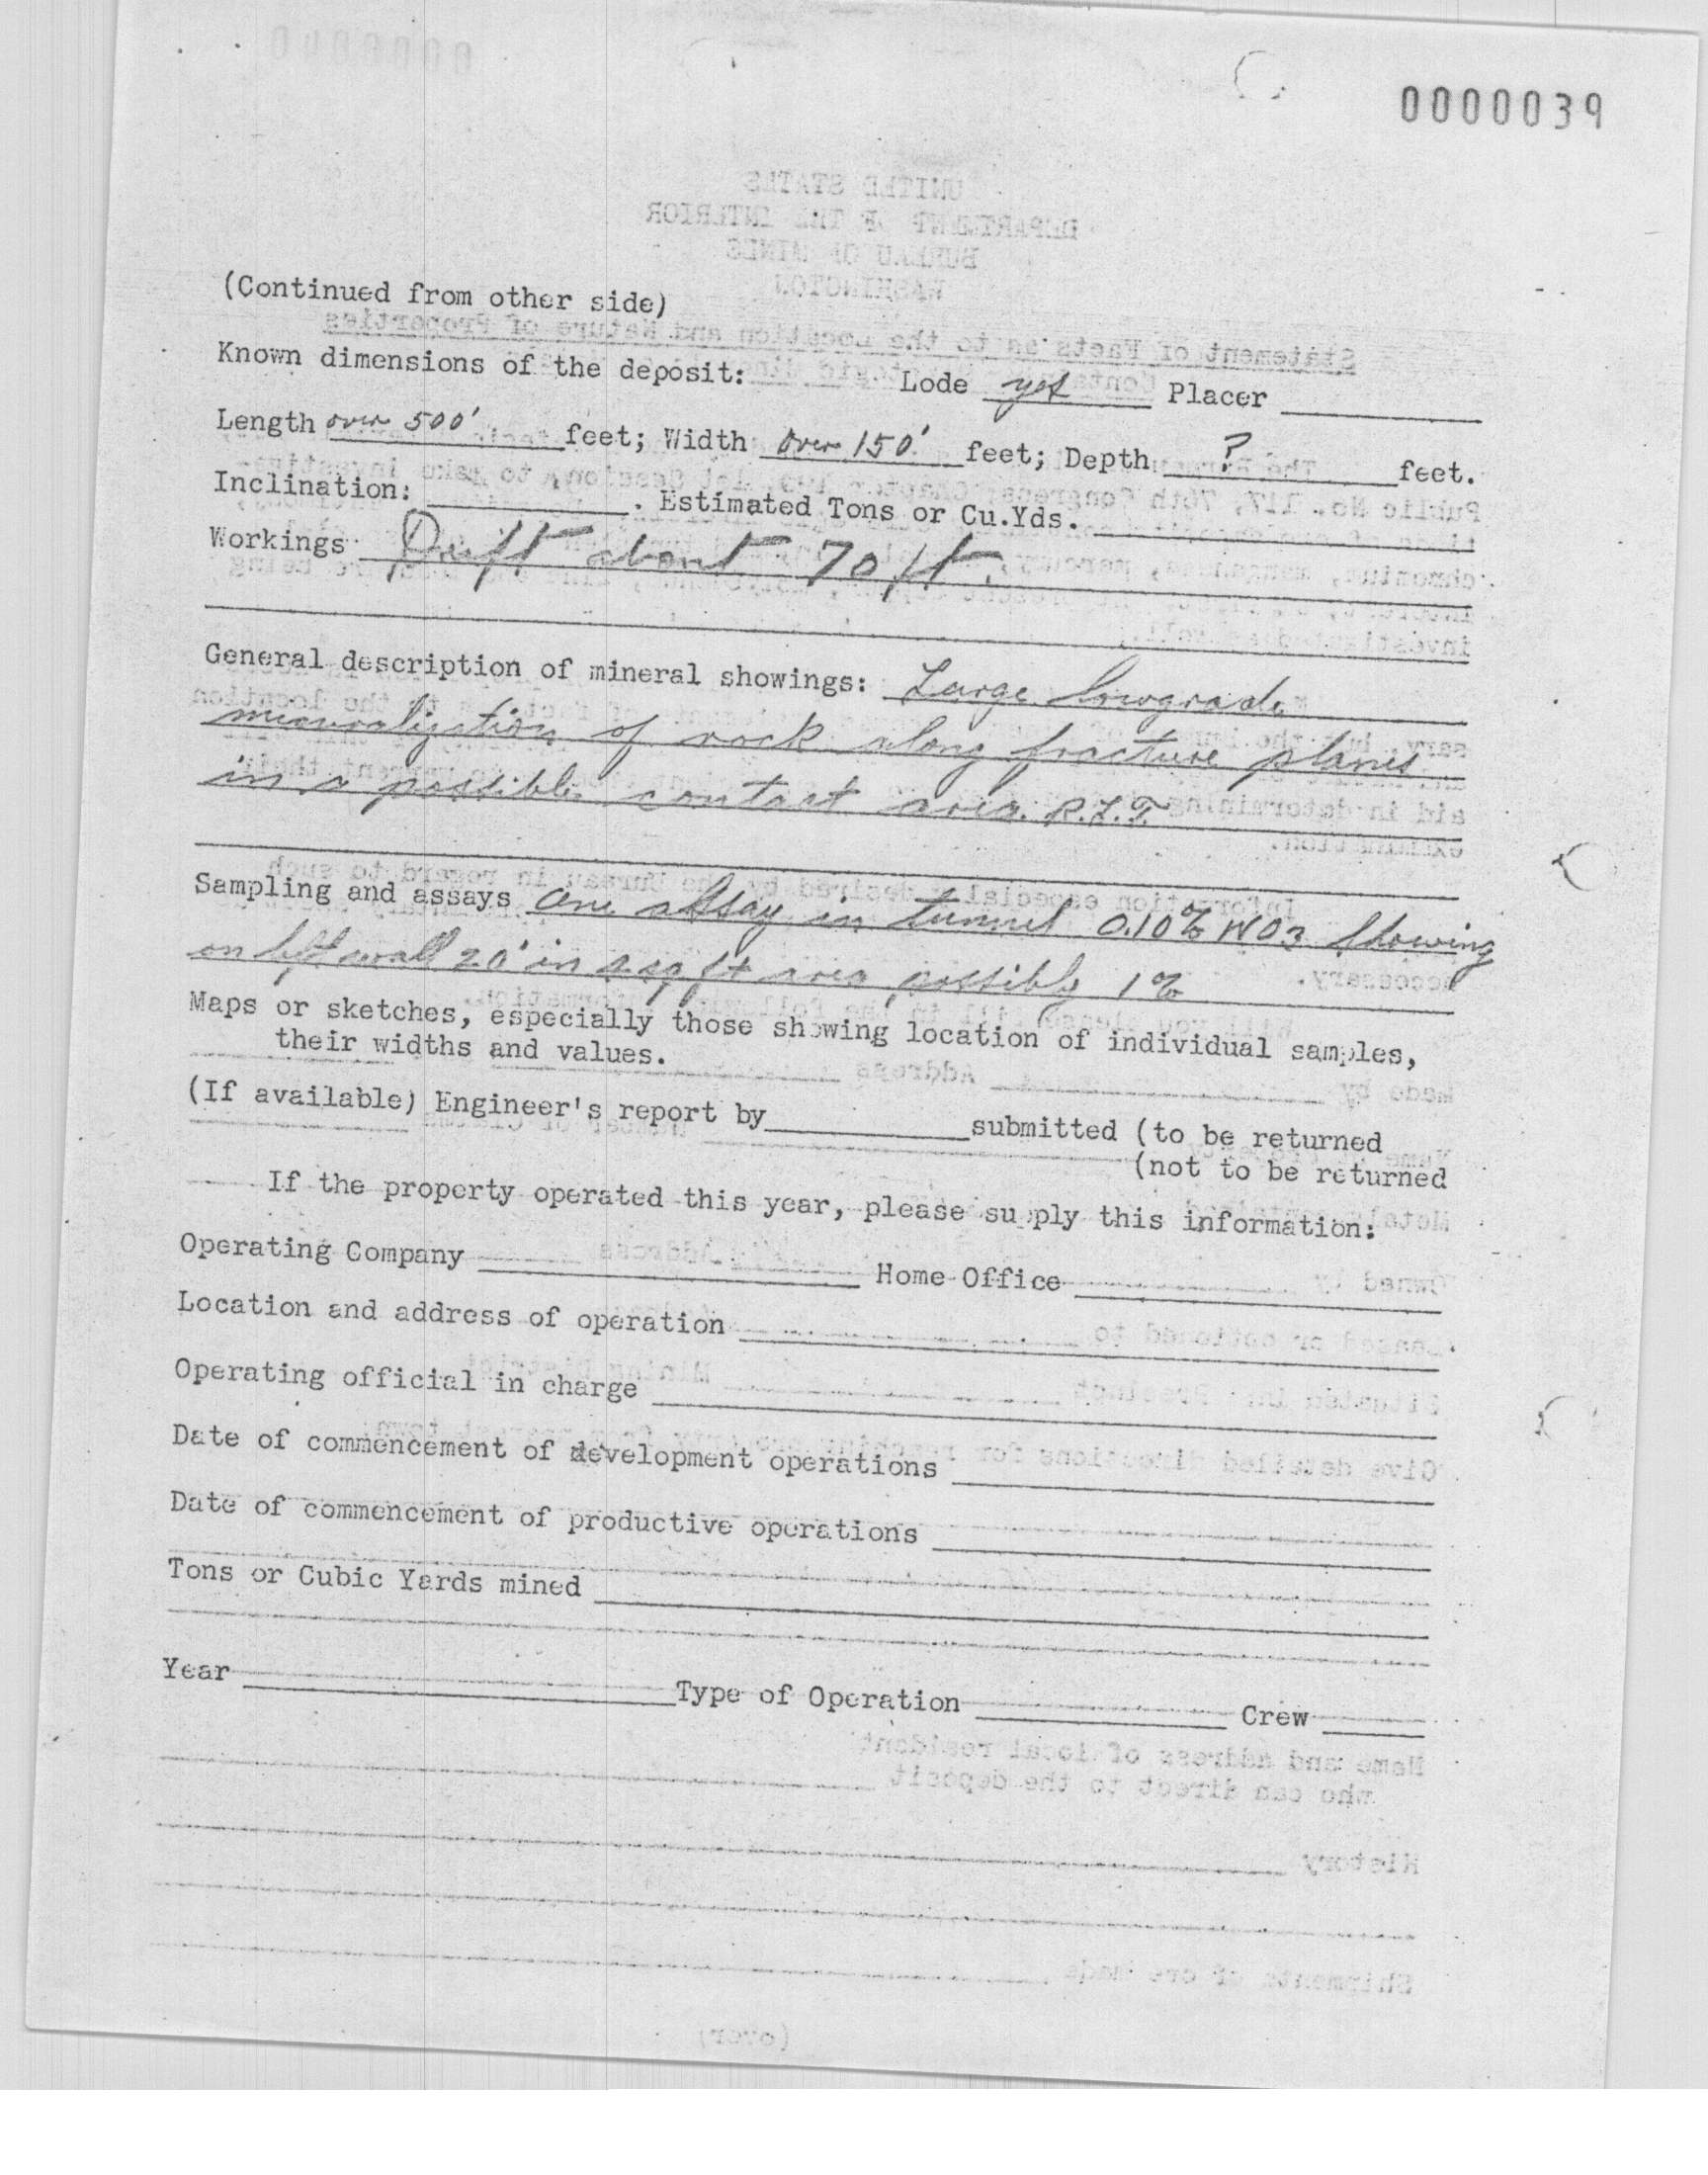 0000039
(Continued from other side)
Known dimensions of the deposit: Lode yes Placer
Length over 500' feet; Width over 150' feet; Depth ? feet.
Inclination: . Estimated Tons or Cu.Yds.
Workings Drift about 70 ft.
General description of mineral showings: Large lowgrade
mineralization of rock along fracture planes
in a possible contact area. R.L.T.
Sampling and assays One assay in tunnel 0.10% WO3 showing
on left wall 20' in 2 sq ft area possibly 1%
Maps or sketches, especially those showing location of individual samples,
their widths and values.
(If available) Engineer's report by submitted (to be returned
(not to be returned
If the property operated this year, please supply this information:
Operating Company Home Office
Location and address of operation
Operating official in charge
Date of commencement of development operations
Date of commencement of productive operations
Tons or Cubic Yards mined
Year Type of Operation Crew